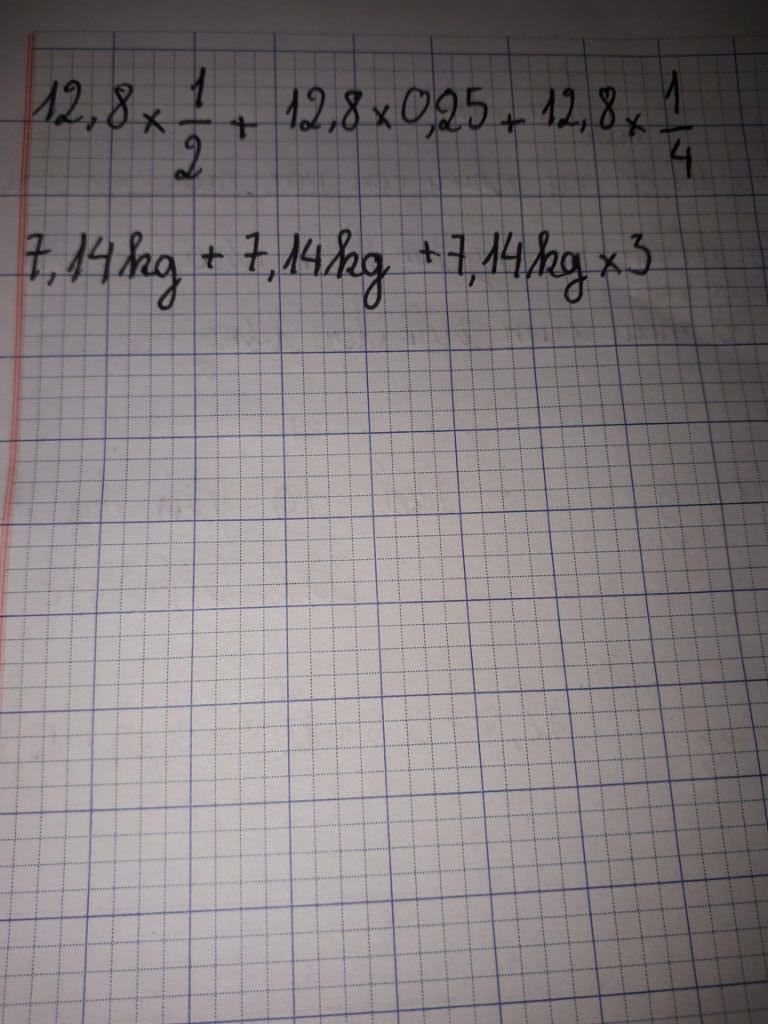 12,8 × 1/2 + 12,8 × 0,25 + 12,8 × 1/4
7,14 kg + 7,14 kg + 7,14 kg × 3